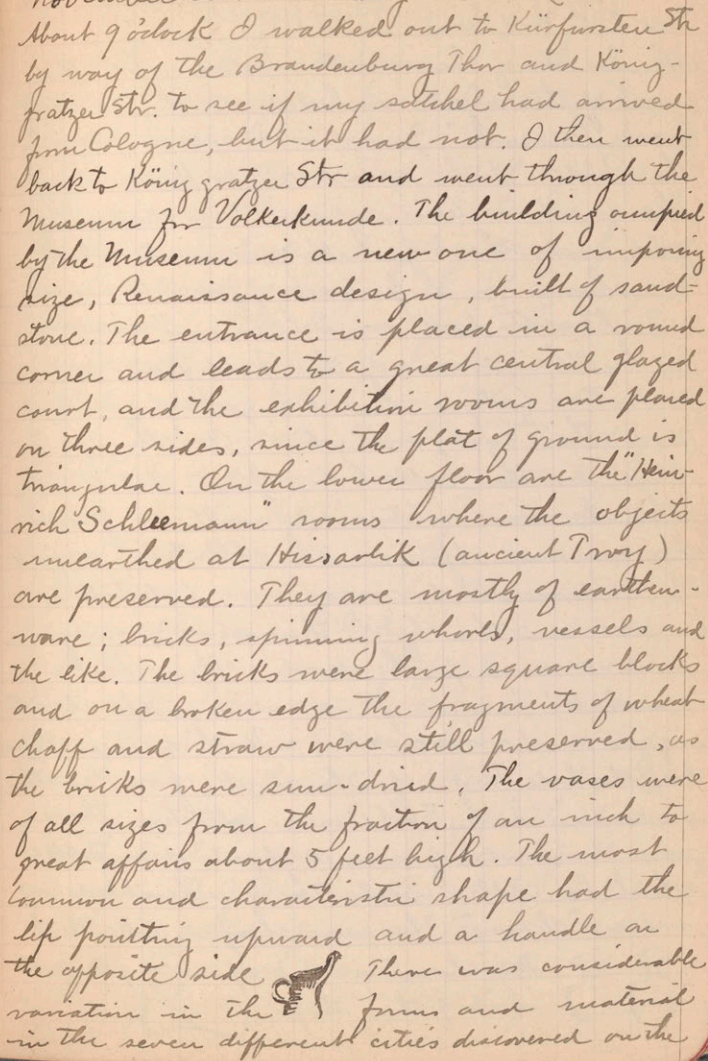 About 9 o'clock I walked out to Kürfursten Str
by way of the Brandenburg Thor and König-
gratzer Str. to see if my satchel had arrived
from Cologne, but it had not. I then went
back to König gratzer Str and went through the
Museum für Volkerkunde. The building occupied
by the Museum is a new one of imposing
size, Renaissance design, built of sand-
stone. The entrance is placed in a round
corner and leads to a great central glazed
court, and the exhibition rooms are placed
on three sides, since the plat of ground is
triangular. On the lower floor are the "Hein-
rich Schleemann" rooms where the objects
unearthed at Hissarlik (ancient Troy)
are preserved. They are mostly of earthen-
ware; bricks, spinning whorls, vessels and
the like. The bricks were large square blocks
and on a broken edge the fragments of wheat
chaff and straw were still preserved, as
the bricks were sun-dried. The vases were
of all sizes from the fraction of an inch to
great affairs about 5 feet high. The most
common and characteristic shape had the
lip pointing upward and a handle on
the opposite side There was considerable
variation in the forms and material
in the seven different cities discovered on the